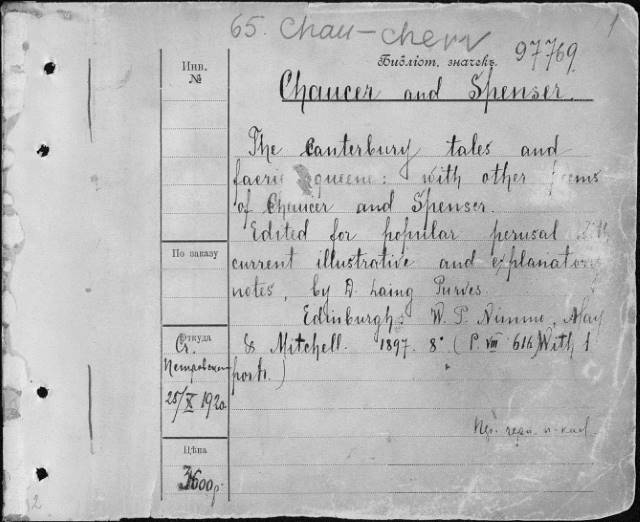 65. Chau - cherr
1
Библіот. значекъ.
97769
Инв.
№
Chaucer and Spenser.
The Canterbury tales and
faerie queene: with other poems
of Chaucer and Spenser.
Edited for popular perusal with
current illustrative and explanatory
notes, by D. Laing Purves.
Edinburgh: W. P. Nimmo, Hay
& Mitchell. 1897. 8° (P. VIII 616) With 1
portr.)
По заказу
Откуда
Ст.
Петровск
25/X 1920
Цѣна
3600 р.
2